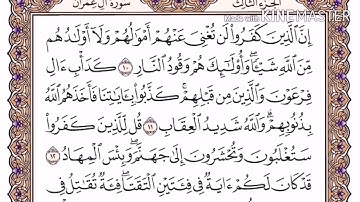 الجزء الثالث
سورة آل عمران
Made with KINEMASTER
إِنَّ ٱلَّذِينَ كَفَرُوا۟ لَن تُغْنِىَ عَنْهُمْ أَمْوَٰلُهُمْ وَلَآ أَوْلَٰدُهُم
مِّنَ ٱللَّهِ شَيْـًٔا ۖ وَأُو۟لَٰٓئِكَ هُمْ وَقُودُ ٱلنَّارِ ١٠ كَدَأْبِ ءَالِ
فِرْعَوْنَ وَٱلَّذِينَ مِن قَبْلِهِمْ ۚ كَذَّبُوا۟ بِـَٔايَٰتِنَا فَأَخَذَهُمُ ٱللَّهُ
بِذُنُوبِهِمْ ۗ وَٱللَّهُ شَدِيدُ ٱلْعِقَابِ ١١ قُل لِّلَّذِينَ كَفَرُوا۟
سَتُغْلَبُونَ وَتُحْشَرُونَ إِلَىٰ جَهَنَّمَ ۚ وَبِئْسَ ٱلْمِهَادُ ١٢
قَدْ كَانَ لَكُمْ ءَايَةٌ فِى فِئَتَيْنِ ٱلْتَقَتَا ۖ فِئَةٌ تُقَٰتِلُ فِى